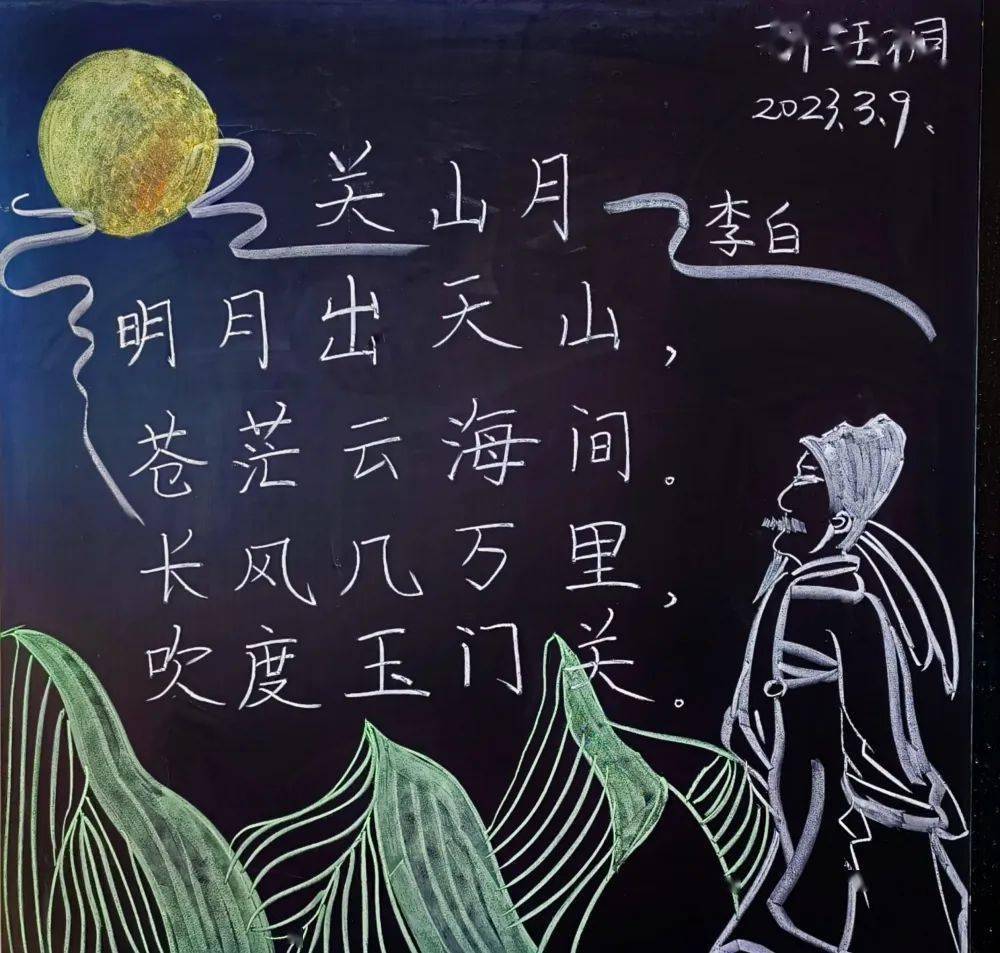 2023.3.9.
关山月 李白
明月出天山，
苍茫云海间。
长风几万里，
吹度玉门关。